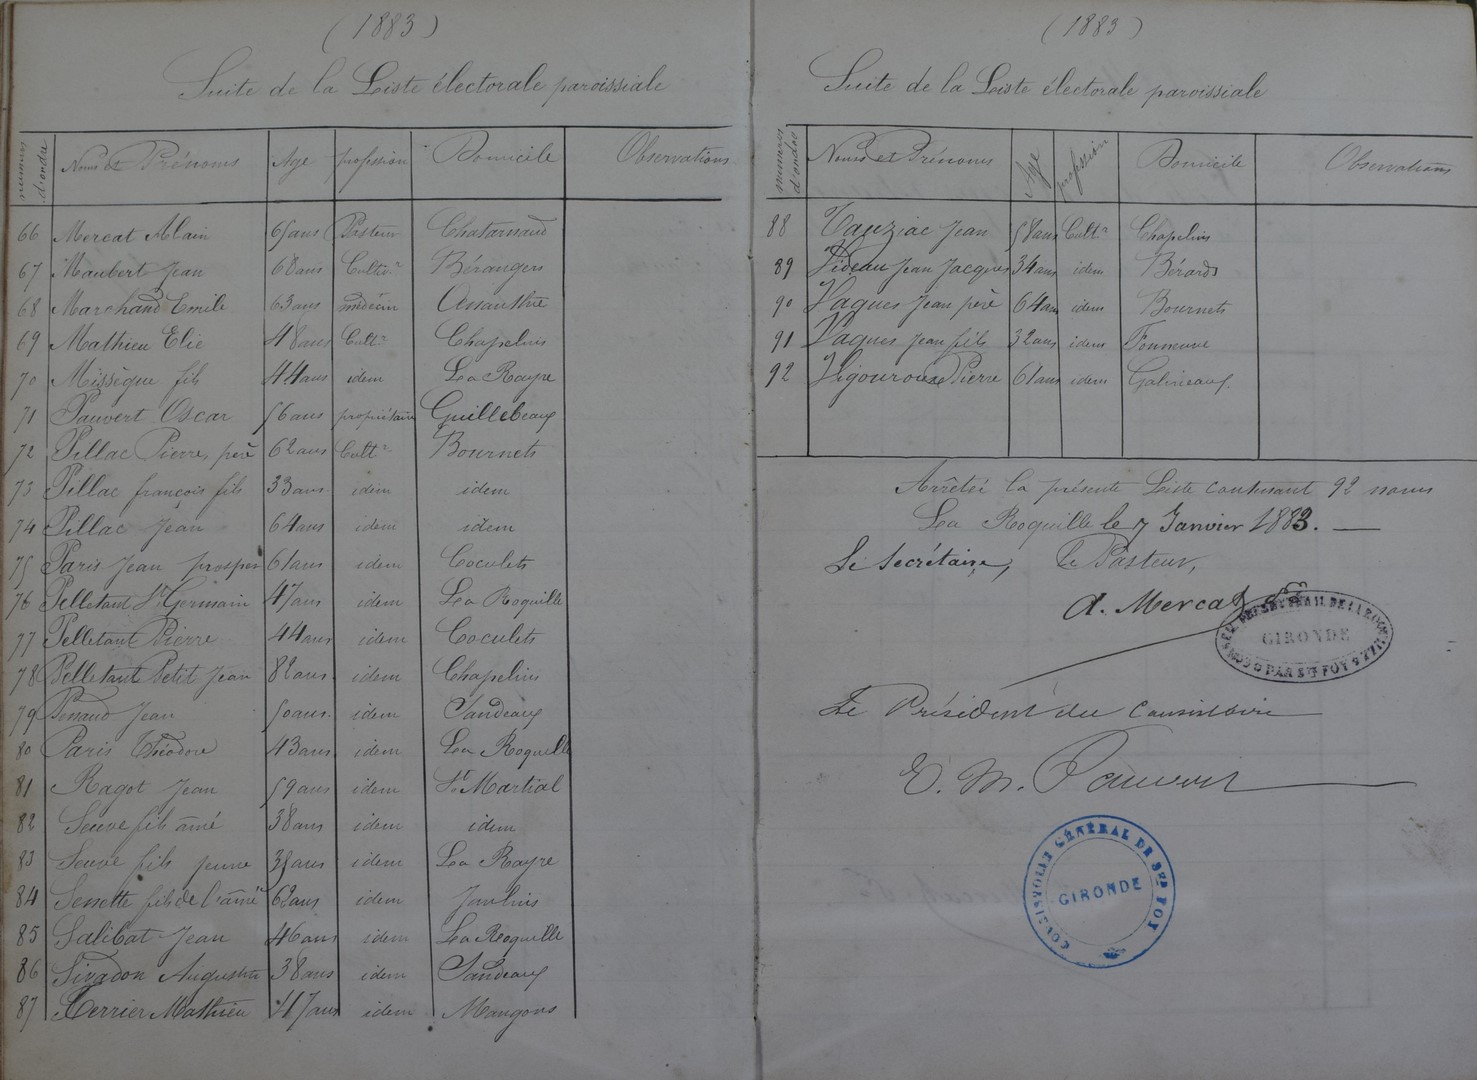 (1883)
Suite de la Liste électorale paroissiale
numéros d'ordre Noms et Prénoms Age profession Domicile Observations
66 Mercat Alain 65 ans Pasteur Chatarnaud
67 Maubert Jean 68 ans Cultivr Bérangers
68 Marchand Emile 63 ans médecin
69 Mathieu Elie 48 ans Cultr Chapelins
70 Missègue fils 44 ans idem La Rayre
71 Pauvert Oscar 56 ans propriétaire Guillebeaux
72 Pillac Pierre, père 62 ans Cultr Bournets
73 Pillac françois fils 33 ans idem idem
74 Pillac Jean 64 ans idem idem
75 Paris Jean prosper 61 ans idem Coculets
76 Pelletant St Germain 47 ans idem La Roquille
77 Pelletant Pierre 44 ans idem Coculets
78 Pelletant Petit Jean 82 ans idem Chapelins
79 Jean 50 ans idem Jandeaux
80 Paris Théodore 43 ans idem La Roquille
81 Ragot Jean 59 ans idem St Martial
82 Seuve fils ainé 38 ans idem idem
83 Seuve fils jeune 35 ans idem La Rayre
84 fils de l'ainé 62 ans idem Jaulins
85 Salibat Jean 46 ans idem La Roquille
86 Augustin 38 ans idem Jandeaux
87 Terrier Mathieu 47 ans idem Mangons
(1883)
Suite de la Liste électorale paroissiale
numéros d'ordre Noms et Prénoms Age profession Domicile Observations
88 Tauziac Jean 58 ans Cultr Chapelins
89 Videau Jean Jacques 34 ans idem Bérards
90 Vaques Jean père 64 ans idem Bournets
91 Vaques Jean fils 32 ans idem Fonneuve
92 Vigouroux Pierre 61 ans idem Galineaux
Arrêtée la présente Liste contenant 92 noms
La Roquille le 7 Janvier 1883.
Le Secrétaire, Le Pasteur,
A. Mercat
GIRONDE
PAR STE FOY
Le Président du Consistoire
E. M. Pauvert
CONSISTOIRE GÉNÉRAL DE STE FOY
GIRONDE